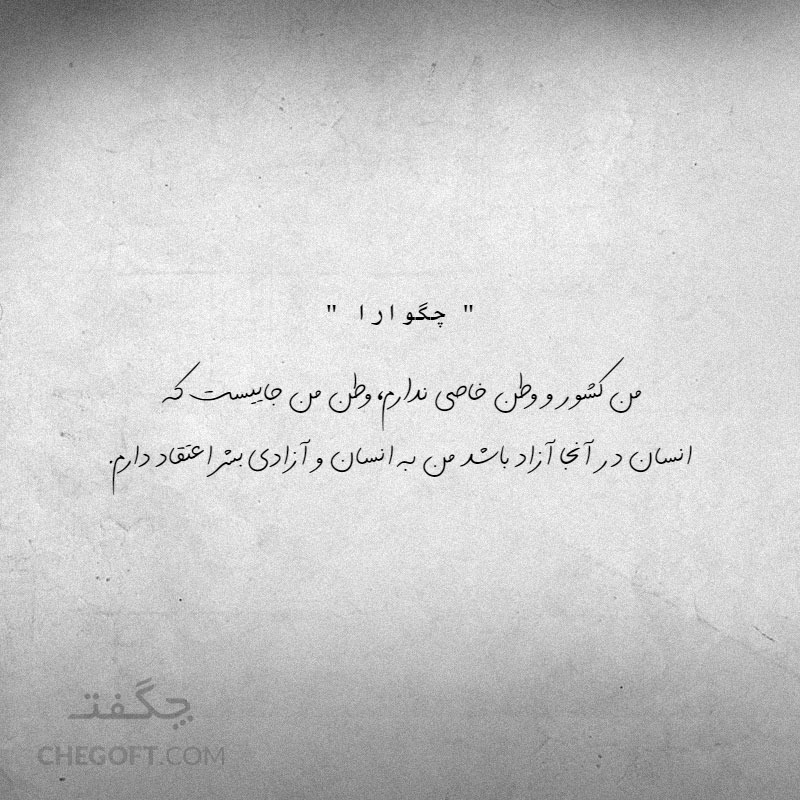 " چگوارا "
من کشور و وطن خاصی ندارم، وطن من جاییست که
انسان در آنجا آزاد باشد من به انسان و آزادی بشر اعتقاد دارم.
چگفت
CHEGOFT.COM